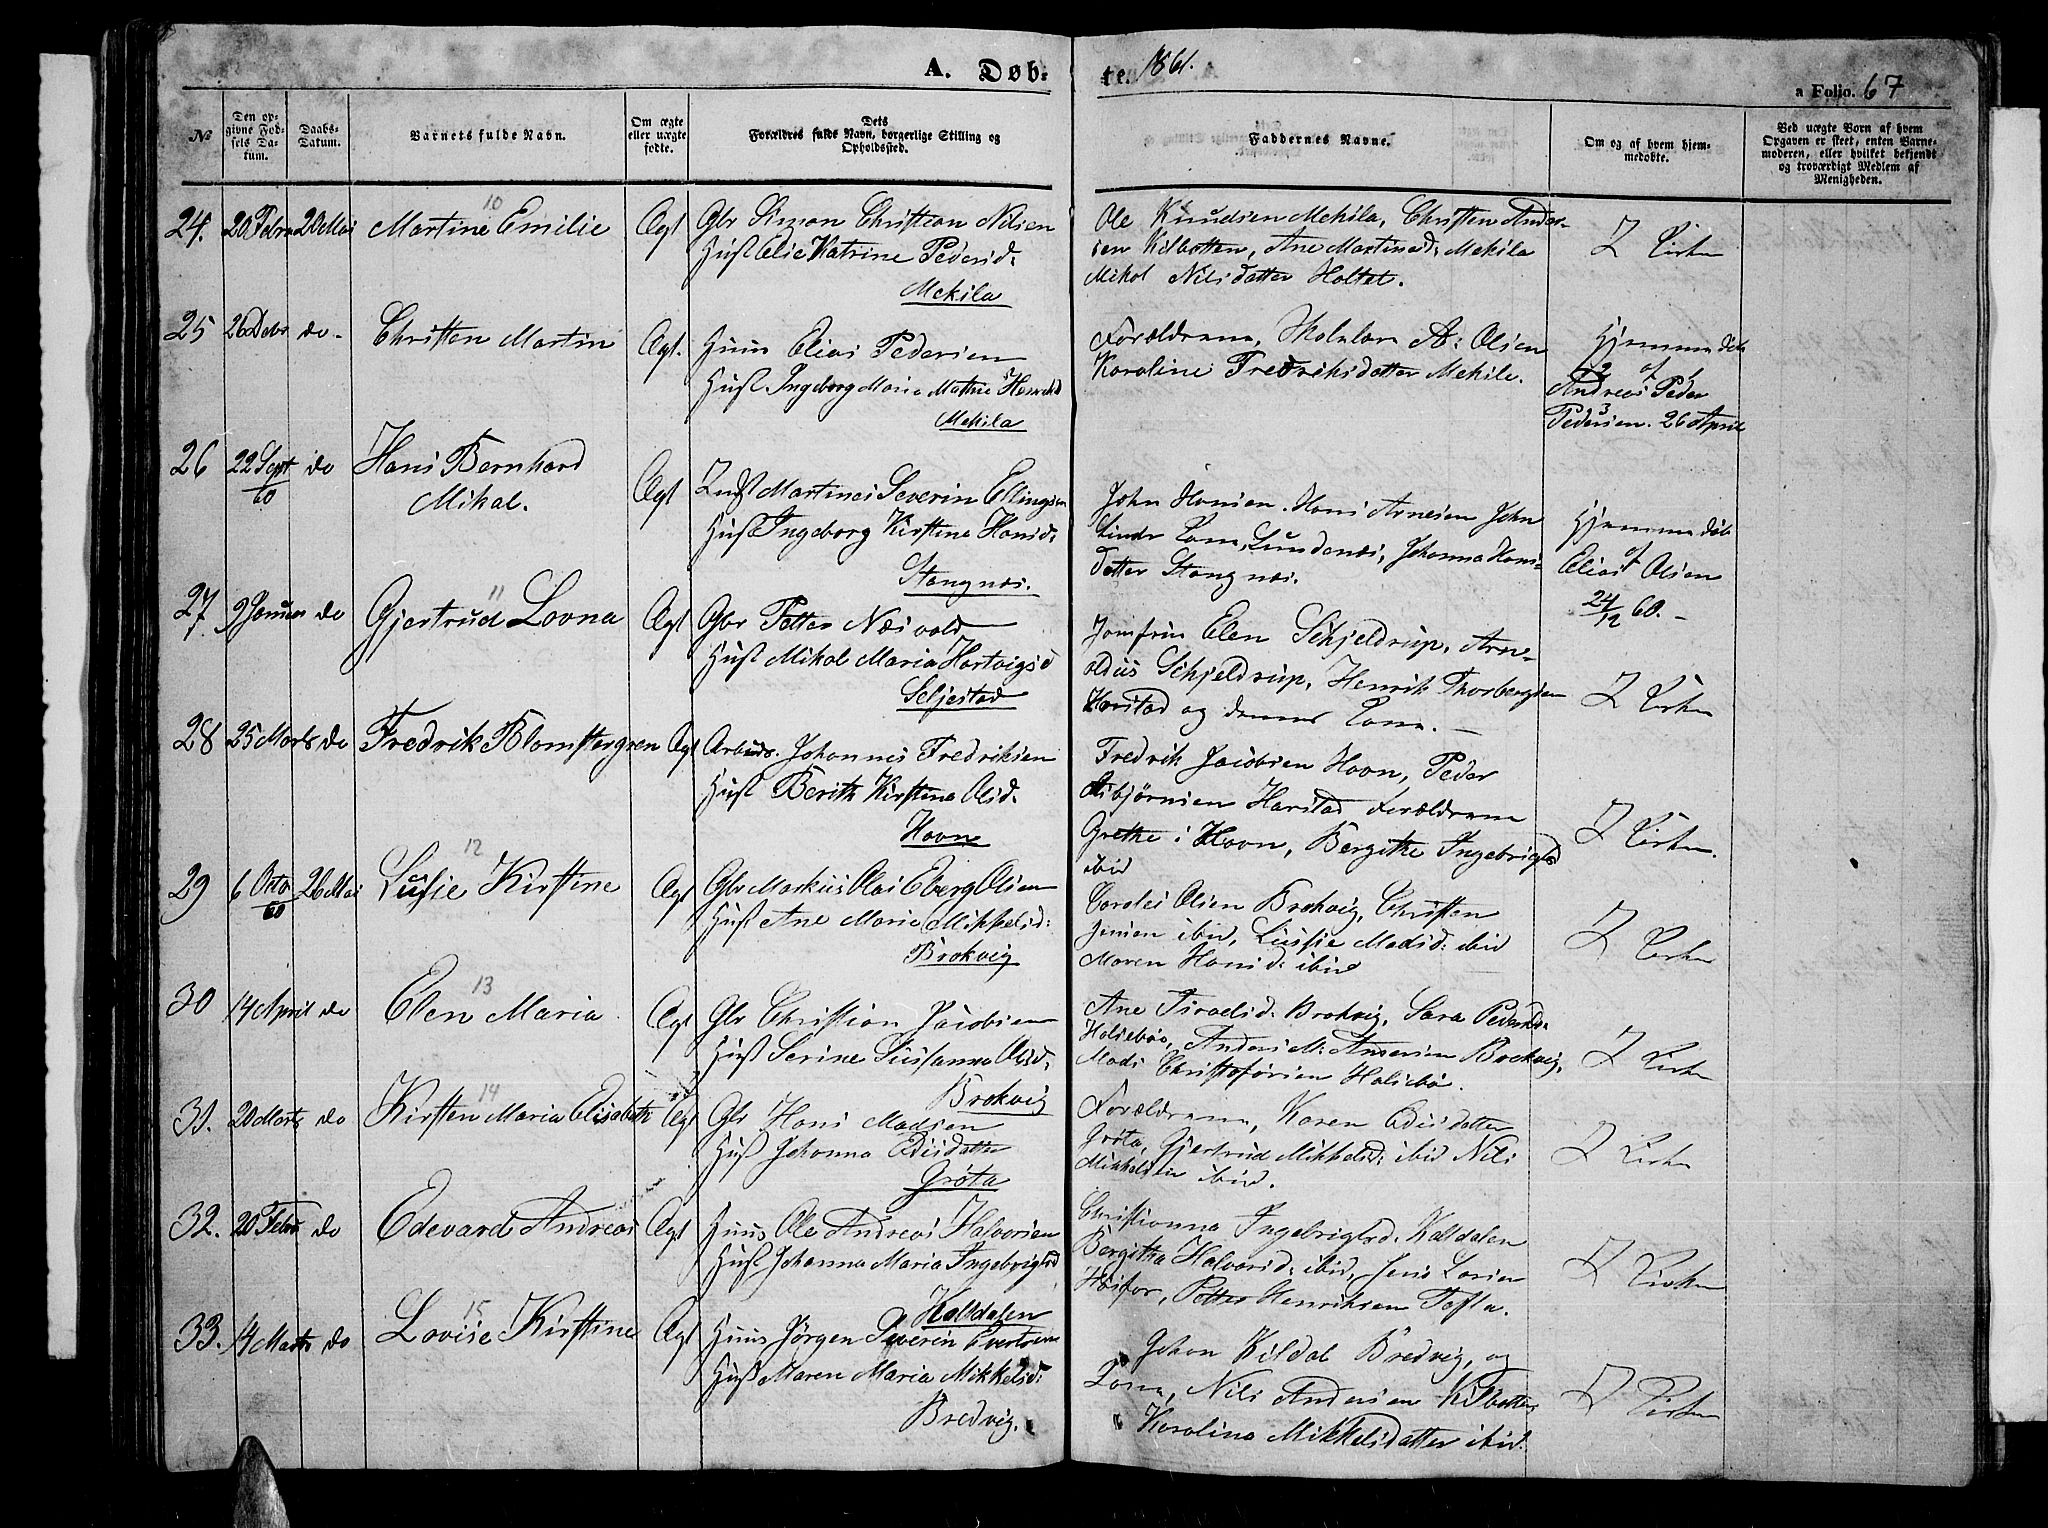 A. Døb-
te. 1861.
a Folio. 67
No
Den op-
givne Fød-
sels Da-
tum.
Daabs-
Datum.
Barnets fulde Navn.
Om ægte
eller uægte
fødte.
Dets
Forældres fulde Navn, borgerlige Stilling og
Opholdssted.
Faddernes Navne.
Om og af hvem hjem-
medøbte.
Ved uægte Børn af hvem
Opgaven er skeet, enten Barne-
moderen, eller hvilket bekjendt
og troværdigt Medlem af
Menigheden.
24. 20 Febru 20 Mai
10
Martine Emilie
Ægt
Gbr Simon Christian Nilsen
Hust Elie Katrine Pedersd:
Mekila
Ole Knudsen Mekila, Christen Ander-
sen Kilbotten, Ane Martinsd: Mekila
Mikol Nilsdatter Holtet.
I Kirken
25 26 do
Christen Martin
Ægt.
Huus Elias Pedersen
Hust. Ingeborg Maria Mathea
Mekila
Forældrene, A: Olsen
Karoline Fredriksdatter Mekila.
Hjemmedøb
af
Andreas Peder
Pedersen. 26 April
26 22 Sept/60 do
Hans Bernhard
Mikal.
Ægt
Indst Martines Severin Ellingsen
Hust Ingeborg Kirstina Hansd:
Stangnæs.
John Hansen. Hans Arnesen John
Kone, Sundenæs, Johanna Hans-
datter Stangnæs.
Hjemmedøb
af
Elias Olsen
24/12 60. -
27. 9 Januar do
11
Gjertrud Lovna
Ægt
Gbr Petter Næsvold
Hust Mikal Maria Hartvigsd
Seljestad
Jomfru Elen Schjeldrup, Arn-
oldus Schjeldrup, Henrik Thorbergsen
Harstad og dennes Kone. -
I Kirken
28 25 Marts do
Fredrik Blomstergren
Ægt
Arbeids. Johannes Fredriksen
Hust Berith Kirstina Olsd.
Havn
Fredrik Jacobsen Havn, Peder
Asbjørnsen Harstad Forældrene
Grethe i Havn, Bergithe Ingebrigtsd
ibid
I Kirken.
29 6 Octo/60 26 Mai
12
Lusie Kirstine
Ægt
Gbr Markus Olai Eberg Olsen
Hust Ane Maria Mikkelsd:
Brokvig
Olsen Brokvig, Christen
Jensen ibid, Lusie Madsd: ibid
Maren Hansd: ibid
I Kirken
30 14 April do
13
Elen Maria
Ægt
Gbr Christian Jacobsen
Hust Serine Susanna Olsd:
Brokvig
Ane Israelsd: Brokvig, Sara Pedersd:
Halsebøe, Anders M: Andersen Brokvig,
Mads Christofersen Halsebø.
I Kirken
31. 20 Marts do
14
Kirsten Maria Elisabeth
Ægt
Gbr Hans Madsen
Hust Johanna Edisdatter
Grøta
Forældrene, Karen Edisdatter
Grøta, Gjertrud Mikkelsd: ibid Nils
Mikkelsen ibid.
I Kirken
32. 20 Febr do
Edevard Andreas
Ægt
Huus Ole Andreas Halvorsen
Hust Johanna Maria Ingebrigtsd
Kalddalen
Christianna Ingebrigtsd. Kalddalen
Bergitha Halvorsd: ibid, Jens Larsen
Petter Henriksen Tofta.
I Kirken
33. 14 Marts do
15
Lovise Kirstine
Ægt
Huus Jørgen Severin Evertsen
Hust Maren Maria Mikkelsd:
Bredvig.
Johan Kildal Bredvig, og
Kone, Nils Andersen Kilbotten
Karolina Mikkelsdatter ibid.
I Kirken